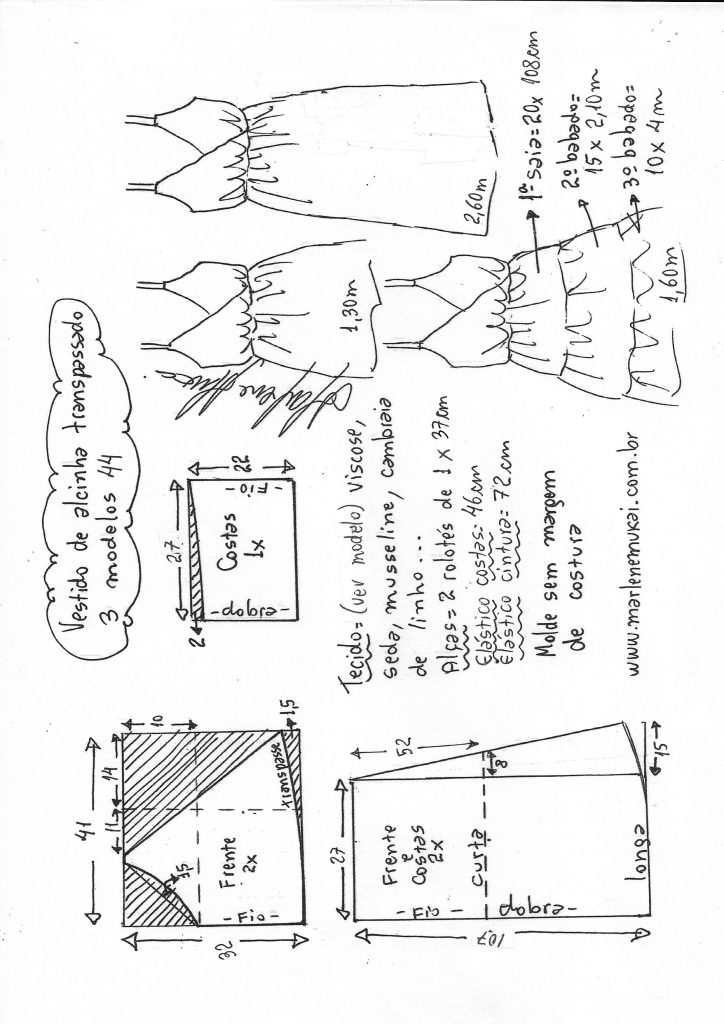 Vestido de alcinha transpassado
3 modelos 44
41
11
14
10
32
3,5
Frente
2x
- Fio -
transpasse
1,5
27
2
22
Costas
1x
- dobra -
- Fio -
1,30m
2,60m
27
52
8
107
Frente
e
Costas
2x
curta
- Fio -
dobra -
longa
15
Tecido= (ver modelo) viscose,
seda, musseline, cambraia
de linho...
Alças= 2 rolotés de 1 x 37cm
Elástico costas: 46cm
Elástico cintura= 72cm
Molde sem margem
de costura
www.marlenemukai.com.br
1ª saia= 20x 108cm
2º babado=
15 x 2,10m
3º babado=
10 x 4m
1,60m